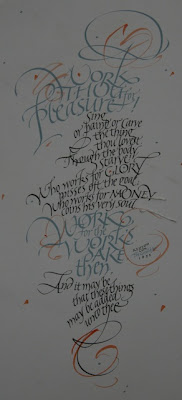 Work
Thou for
Pleasure
Sing
or Paint or Carve
the thing
thou lovest
Though the body
Starve
Who works for GLORY
misses oft the goal
Who works for MONEY
coins his very soul
Work
for the
Work's
SAKE
then
And it may be
that these things
may be added
unto thee